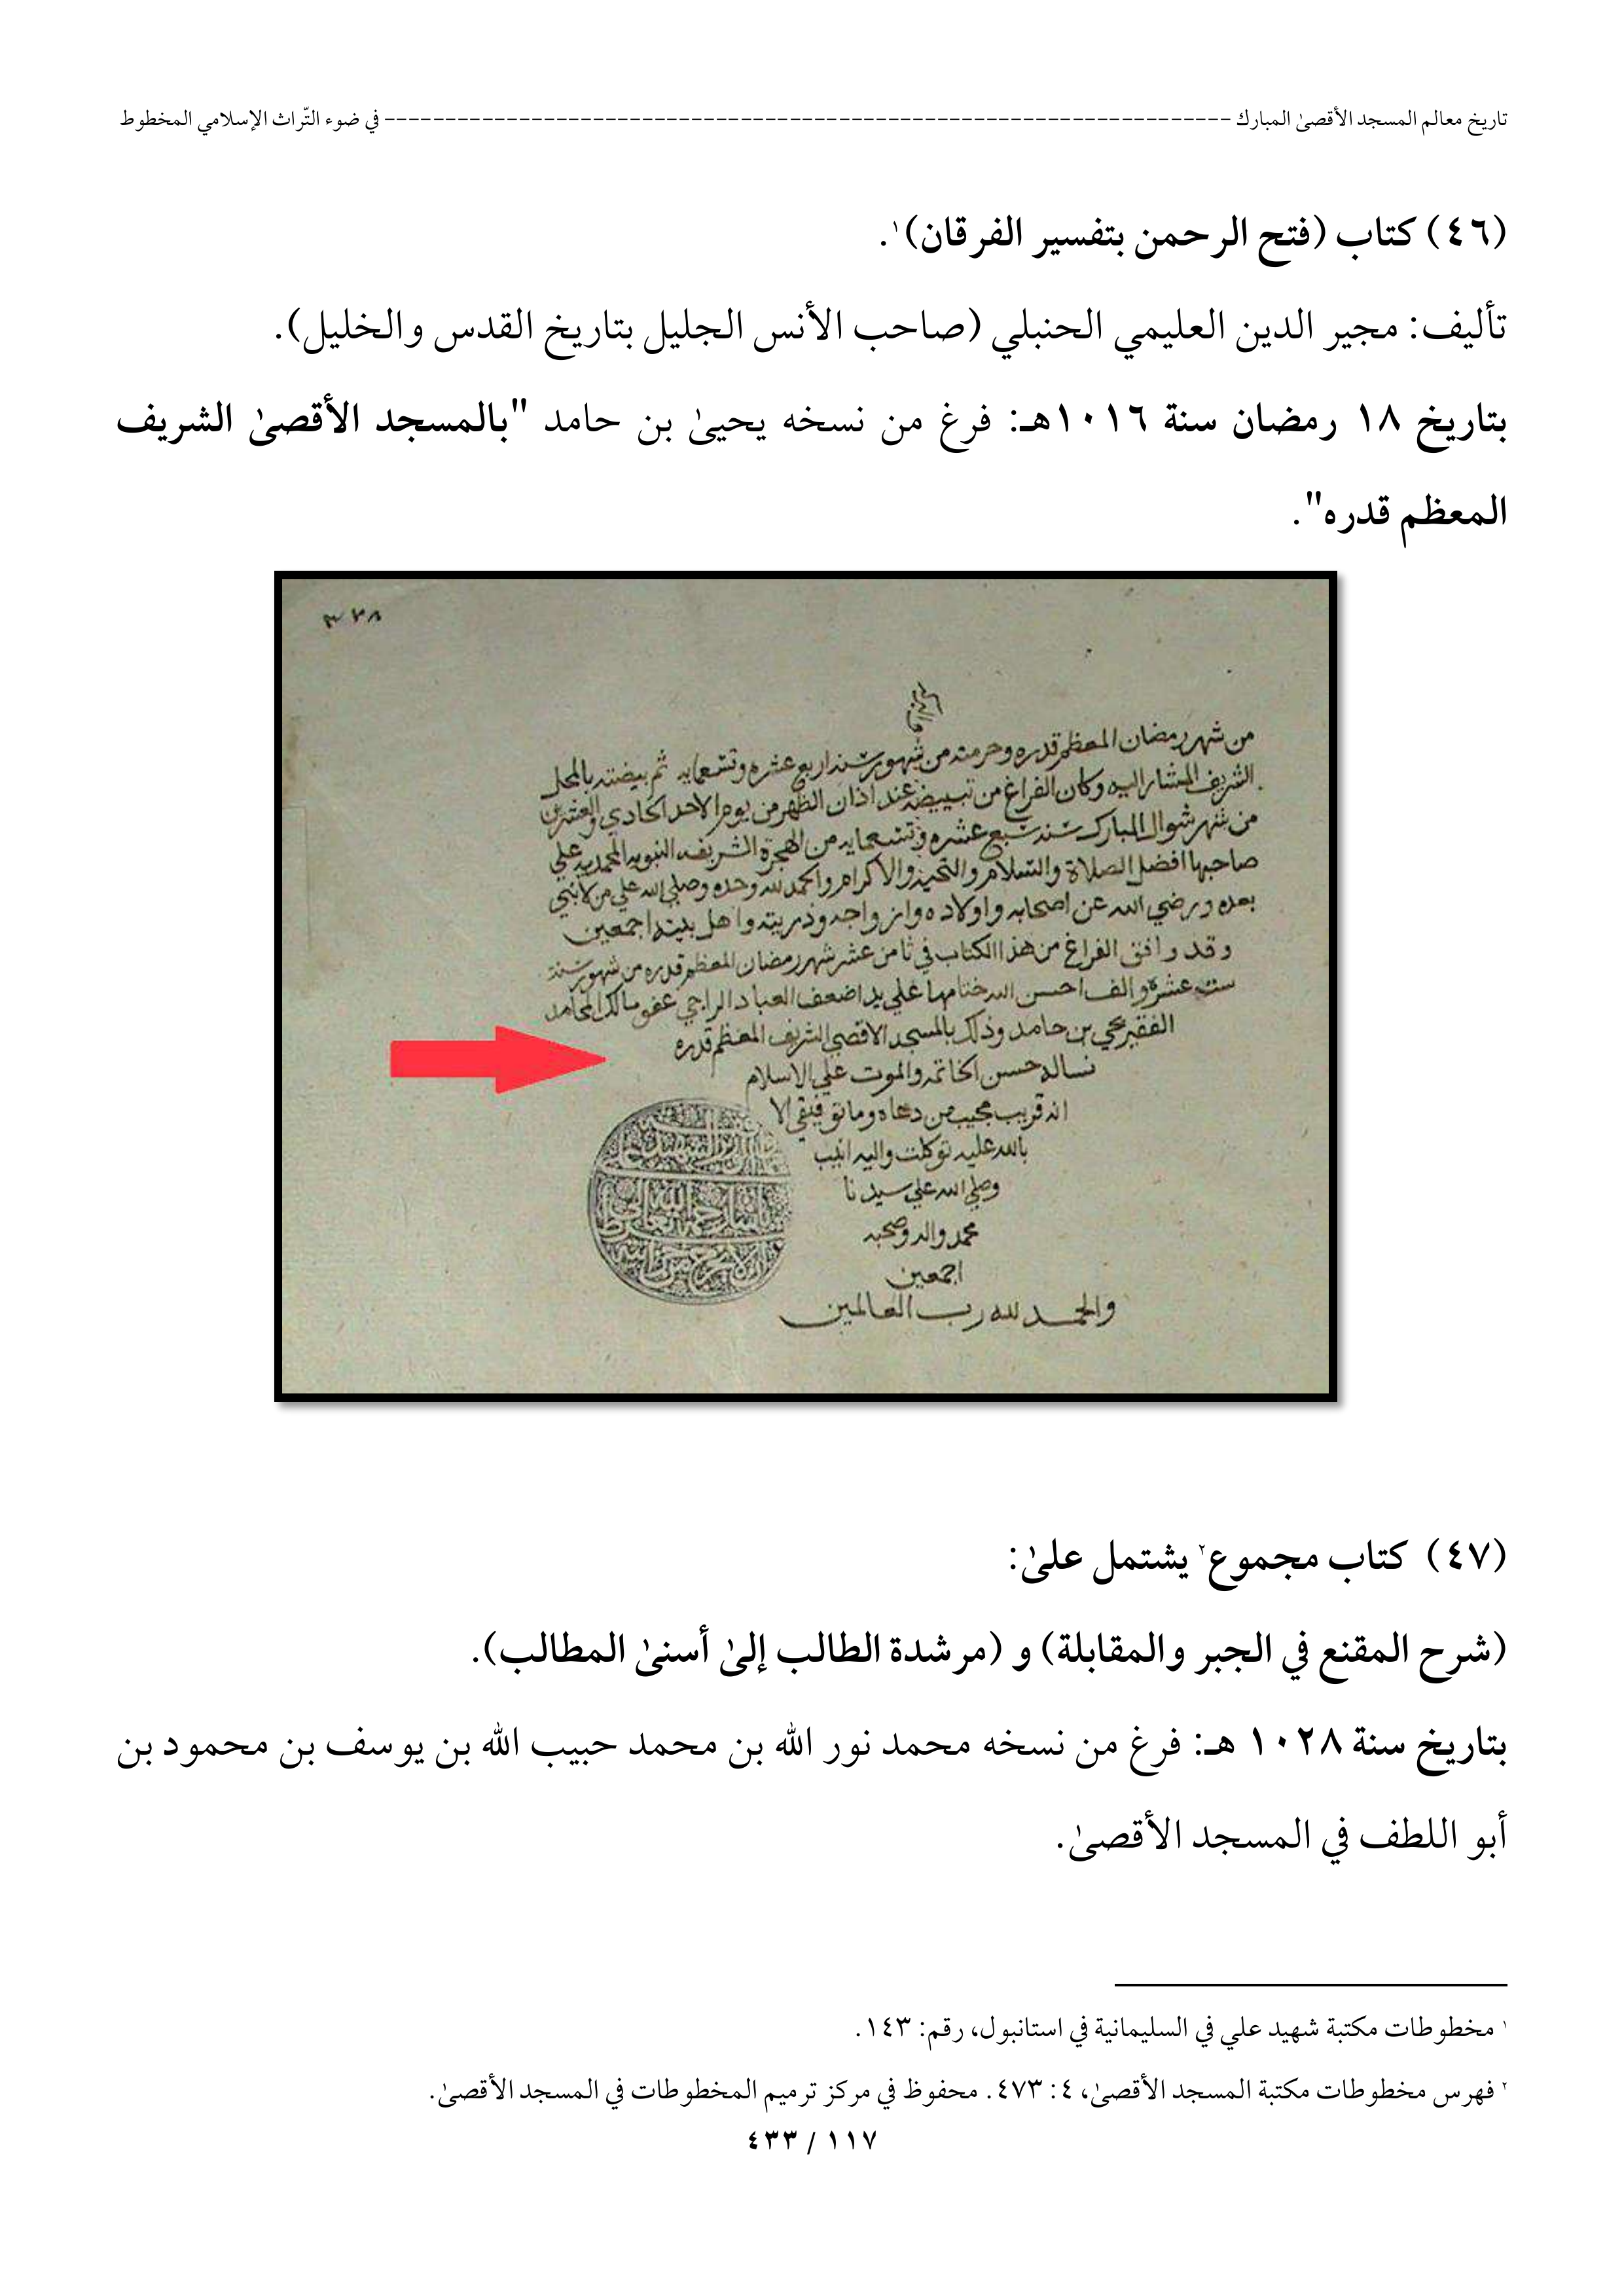 تاريخ معالم المسجد الأقصىٰ المبارك ---------------------------------------------------------------------- في ضوء التّراث الإسلامي المخطوط
(٤٦) كتاب (فتح الرحمن بتفسير الفرقان)١.
تأليف: مجير الدين العليمي الحنبلي (صاحب الأنس الجليل بتاريخ القدس والخليل).
بتاريخ ١٨ رمضان سنة ١٠١٦هـ: فرغ من نسخه يحيىٰ بن حامد "بالمسجد الأقصىٰ الشريف
المعظم قدره".
٣٧٨
من شهر رمضان المعظم قدره وحرمته من شهور سنة اربع عشرة وتسعمايه ثم بيضته بالمحل
الشريف المشار اليه وكان الفراغ من تبييضه عند اذان الظهر من يوم الاحد الحادي والعشرين
من شهر شوال المبارك سنة سبع عشره وتسعمايه من الهجرة الشريفه النبويه المحمديه علي
صاحبها افضل الصلاة والسلام والتحية والاكرام والحمد لله وحده وصلي الله علي من لا نبي
بعده ورضي الله عن اصحابه واولاده وازواجه وذريته واهل بيته اجمعين
وقد وافق الفراغ من هذا الكتاب في ثامن عشر شهر رمضان المعظم قدره من شهور سنة
ست عشرة والف احسن الله ختامها علي يد اضعف العباد الراجي عفو مالك المحامد
الفقير يحيي بن حامد وذلك بالمسجد الاقصي الشريف المعظم قدره
نساله حسن الخاتمه والموت علي الاسلام
انه قريب مجيب من دعاه وما توفيقي الا
بالله عليه توكلت واليه انيب
وصلي الله علي سيدنا
محمد واله وصحبه
اجمعين
والحمد لله رب العالمين
(٤٧) كتاب مجموع٢ يشتمل علىٰ:
(شرح المقنع في الجبر والمقابلة) و (مرشدة الطالب إلىٰ أسنىٰ المطالب).
بتاريخ سنة ١٠٢٨ هـ: فرغ من نسخه محمد نور الله بن محمد حبيب الله بن يوسف بن محمود بن
أبو اللطف في المسجد الأقصىٰ.
١ مخطوطات مكتبة شهيد علي في السليمانية في استانبول، رقم: ١٤٣.
٢ فهرس مخطوطات مكتبة المسجد الأقصىٰ، ٤: ٤٧٣. محفوظ في مركز ترميم المخطوطات في المسجد الأقصىٰ.
١١٧ / ٤٣٣